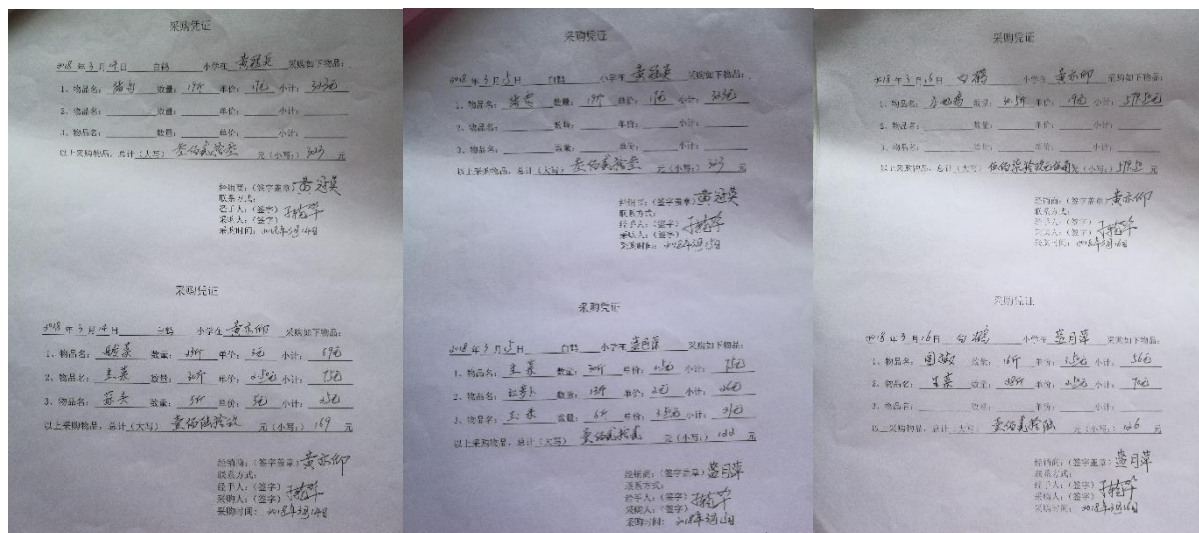 采购凭证
2018年3月14日 白鹤 小学在 黄冠英 采购如下物品：
1、物品名： 数量：19斤 单价：17元 小计：323元
2、物品名： 数量： 单价： 小计：
3、物品名： 数量： 单价： 小计：
以上采购物品，总计（大写） 元（小写：）323 元
经销商：（签字盖章）黄冠英
联系方式：
经手人：（签字）
采购人：（签字）
采购时间：2018年3月14日
采购凭证
2018年3月14日 白鹤 小学在 黄亦仰 采购如下物品：
1、物品名： 数量：23斤 单价：3元 小计：69元
2、物品名：生菜 数量：30斤 单价：2.5元 小计：75元
3、物品名：蒜头 数量：5斤 单价：5元 小计：25元
以上采购物品，总计（大写）壹佰陆拾玖 元（小写：）169 元
经销商：（签字盖章）黄亦仰
联系方式：
经手人：（签字）
采购人：（签字）
采购时间：2018年3月14日
采购凭证
2018年3月15日 白鹤 小学在 黄冠英 采购如下物品：
1、物品名： 数量：19斤 单价：17元 小计：323元
2、物品名： 数量： 单价： 小计：
3、物品名： 数量： 单价： 小计：
以上采购物品，总计（大写） 元（小写：）323 元
经销商：（签字盖章）黄冠英
联系方式：
经手人：（签字）
采购人：（签字）
采购时间：2018年3月15日
采购凭证
2018年3月15日 白鹤 小学在 月萍 采购如下物品：
1、物品名：生菜 数量：30斤 单价：2.5元 小计：75元
2、物品名：红萝卜 数量：13斤 单价：2元 小计：26元
3、物品名： 数量：6斤 单价：3.5元 小计：21元
以上采购物品，总计（大写）壹佰贰拾贰 元（小写：）122 元
经销商：（签字盖章） 月萍
联系方式：
经手人：（签字）
采购人：（签字）
采购时间：2018年3月15日
采购凭证
2018年3月16日 白鹤 小学在 黄亦仰 采购如下物品：
1、物品名： 数量：30.5斤 单价：19元 小计：579.5元
2、物品名： 数量： 单价： 小计：
3、物品名： 数量： 单价： 小计：
以上采购物品，总计（大写）伍佰柒拾玖元伍角 元（小写：）579.5 元
经销商：（签字盖章）黄亦仰
联系方式：
经手人：（签字）
采购人：（签字）
采购时间：2018年3月16日
采购凭证
2018年3月16日 白鹤 小学在 月萍 采购如下物品：
1、物品名： 数量：16斤 单价：3.5元 小计：56元
2、物品名：生菜 数量：28斤 单价：2.5元 小计：70元
3、物品名： 数量： 单价： 小计：
以上采购物品，总计（大写）壹佰贰拾陆 元（小写：）126 元
经销商：（签字盖章） 月萍
联系方式：
经手人：（签字）
采购人：（签字）
采购时间：2018年3月16日